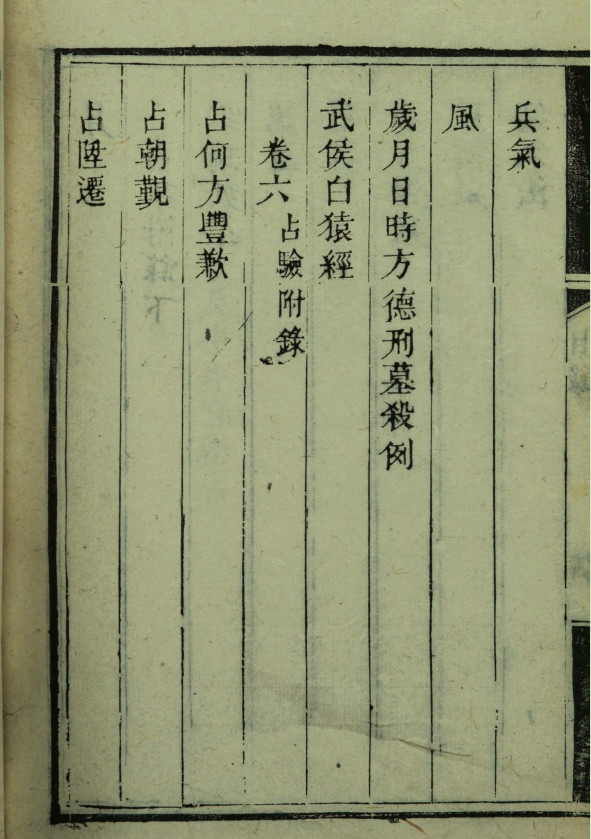 兵氣
風
歲月日時方德刑墓殺例
武侯白猿經
卷六 占驗附錄
占何方豐歉
占朝覲
占陞遷